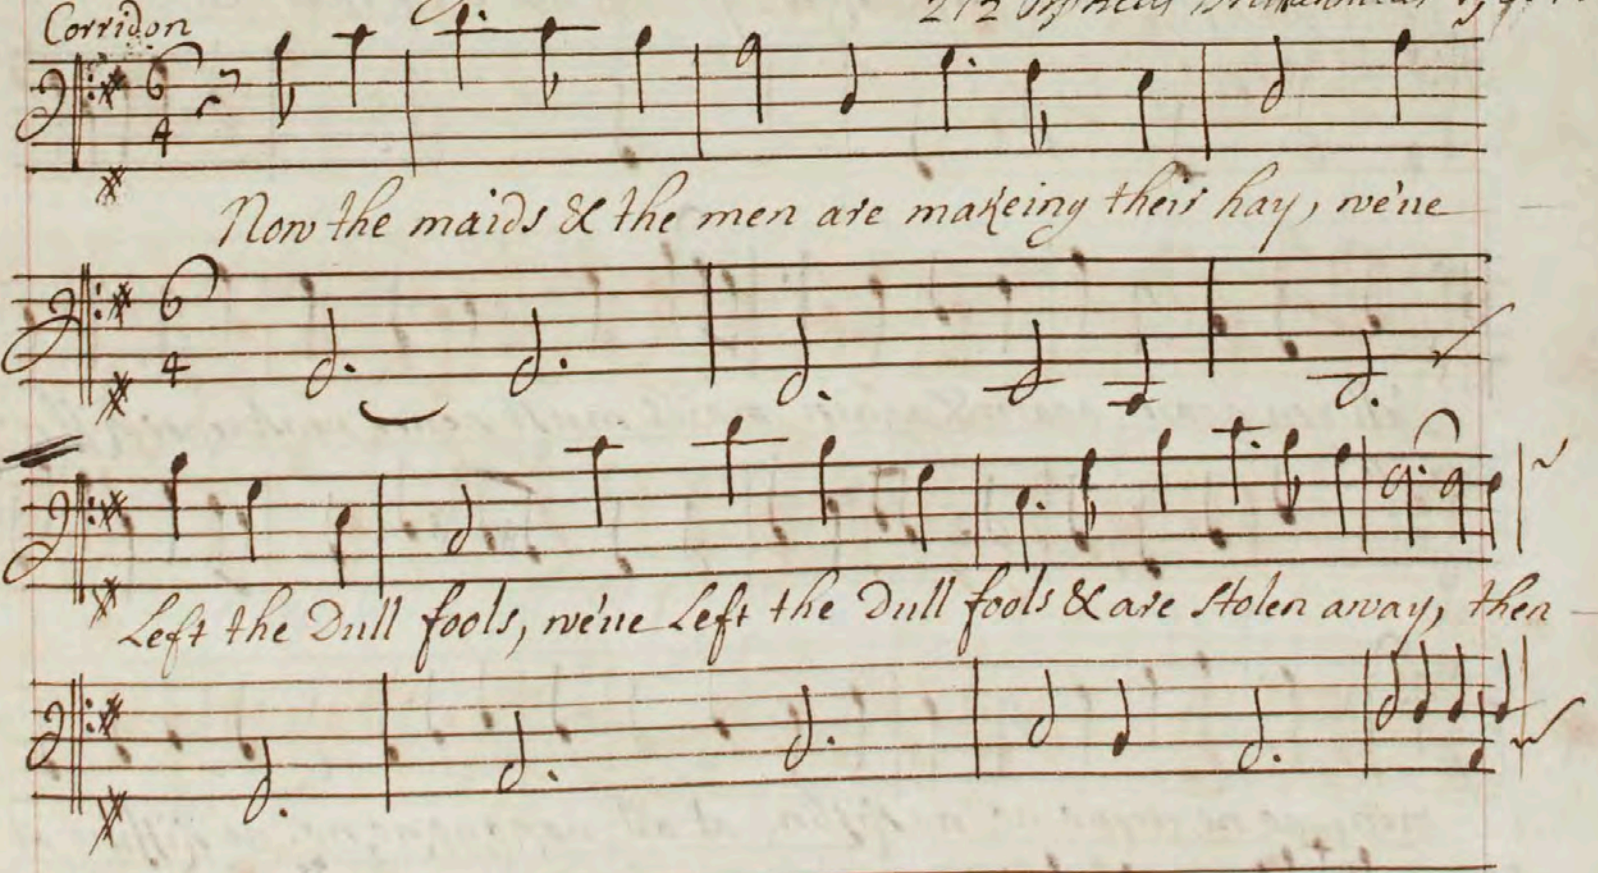 Corridon
212 Orpheus Britannicus
6
4
Now the maids & the men are makeing their hay, we've
6
4
Left the Dull fools, we've Left the Dull fools & are stolen away, then